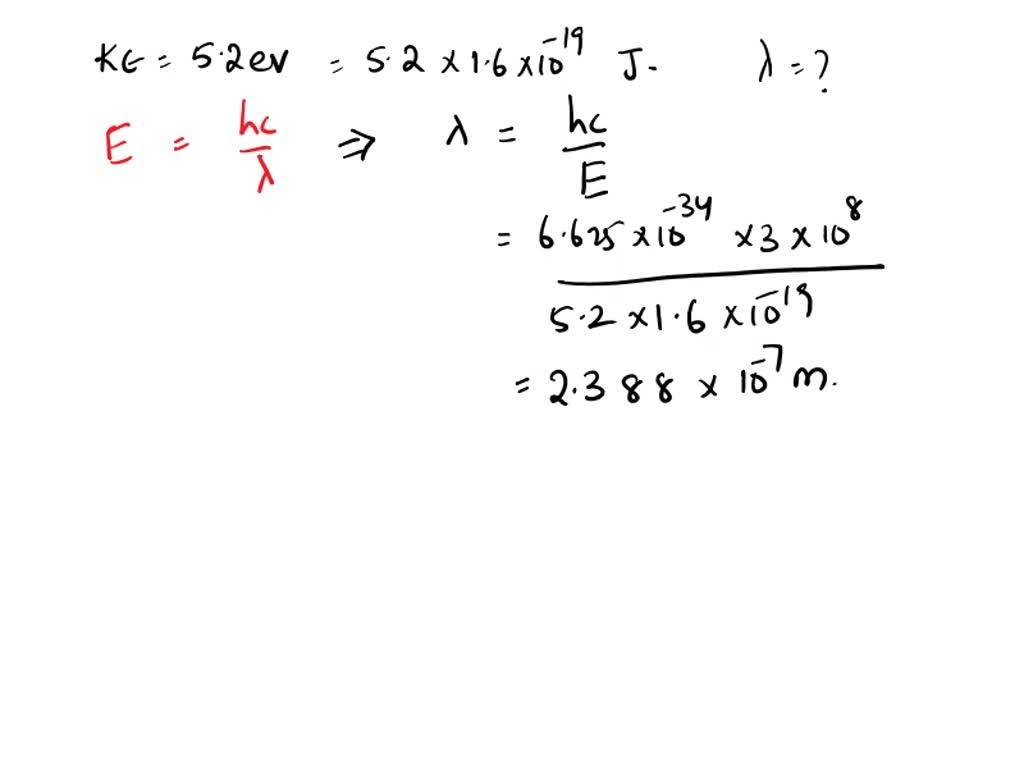 KE = 5.2 ev = 5.2 × 1.6 × 10⁻¹⁹ J. λ = ?
E = hc/λ ⇒ λ = hc/E
= 6.625 × 10⁻³⁴ × 3 × 10⁸
5.2 × 1.6 × 10⁻¹⁹
= 2.388 × 10⁻⁷ m.